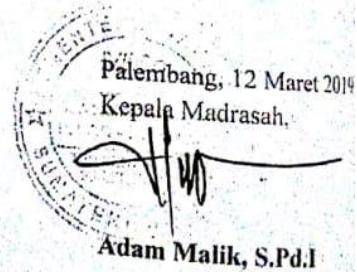 MENTE
Palembang, 12 Maret 2019
Kepala Madrasah,
SUMATE
Adam Malik, S.Pd.I